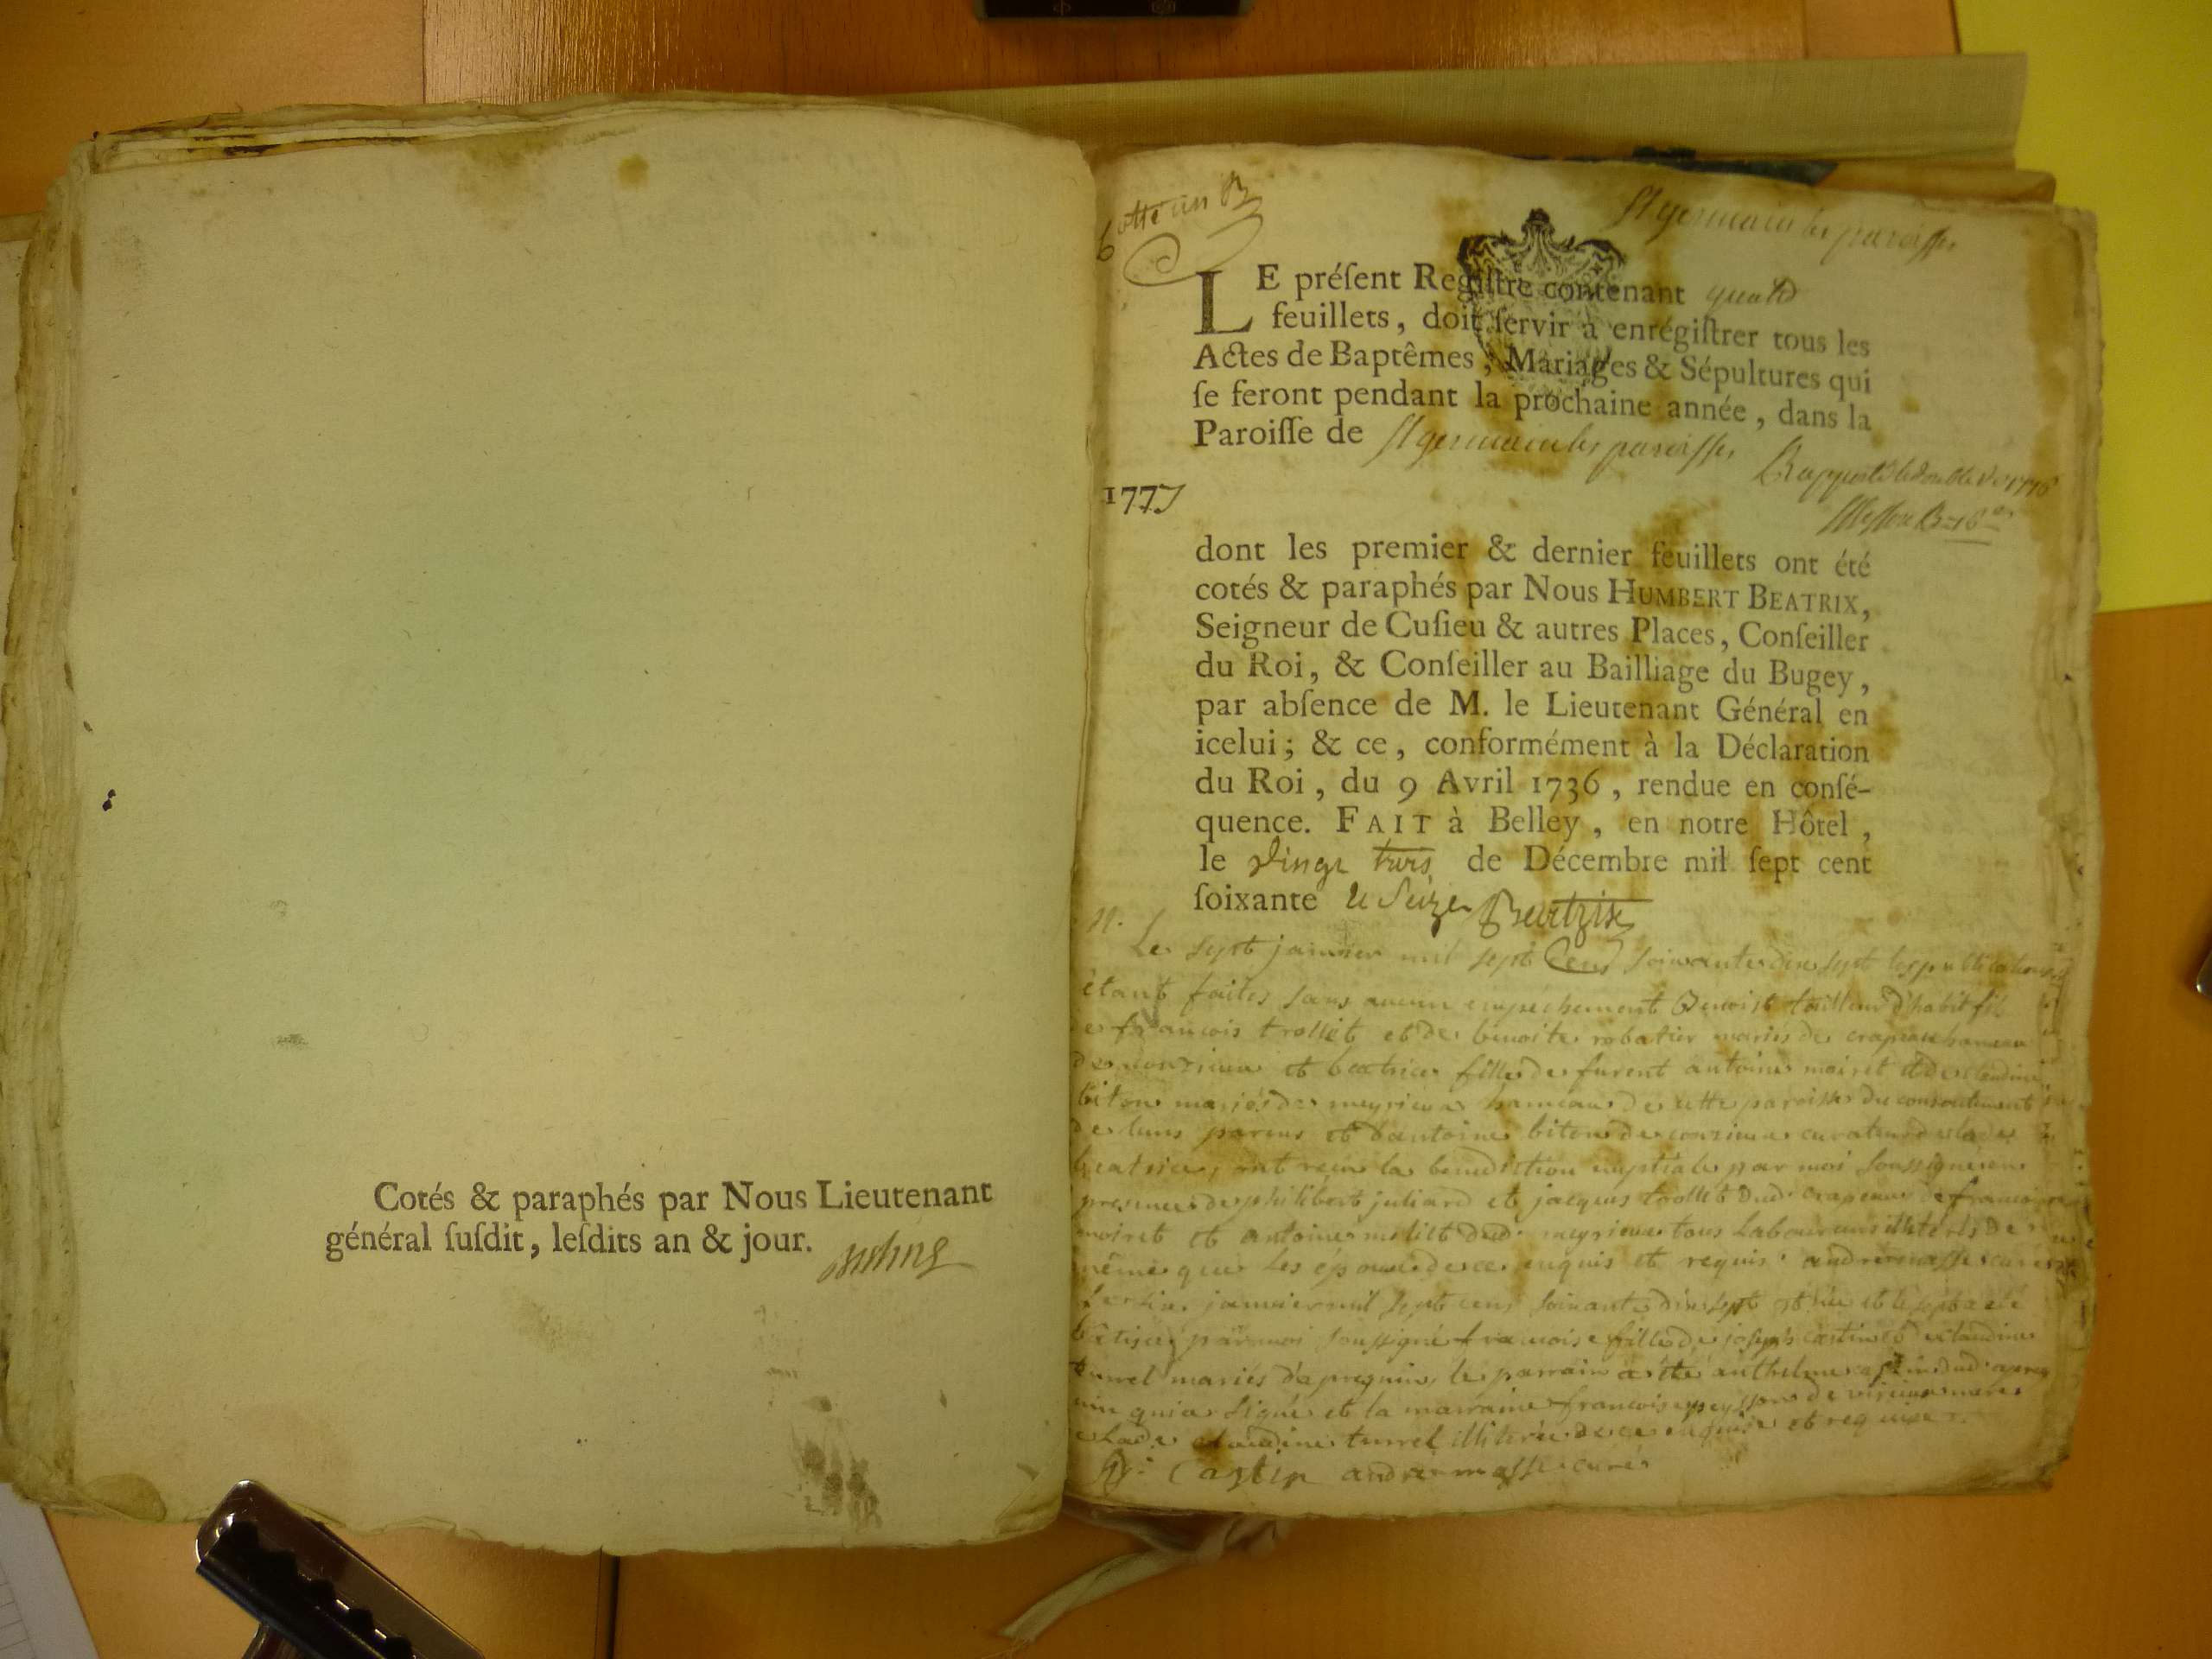 Cotés & paraphés par Nous Lieutenant
général ſuſdit, leſdits an & jour.
Cotté un B
St germain les paroisses
LE préſent Regiſtre contenant quatre
feuillets, doit ſervir à enrégiſtrer tous les
Actes de Baptêmes, Mariages & Sépultures qui
ſe feront pendant la prochaine année, dans la
Paroiſſe de St germain les paroisses
Rapporté le double de 1776
1777
dont les premier & dernier feuillets ont été
cotés & paraphés par Nous HUMBERT BEATRIX,
Seigneur de Cuſieu & autres Places, Conſeiller
du Roi, & Conſeiller au Bailliage du Bugey,
par abſence de M. le Lieutenant Général en
icelui; & ce, conformément à la Déclaration
du Roi, du 9 Avril 1736, rendue en conſé-
quence. FAIT à Belley, en notre Hôtel,
le Vingt trois de Décembre mil ſept cent
ſoixante et Seize Beatrix
Le sept janvier mil sept Cens soixante dix sept les publications
étant faites sans aucun empechement Benoist tailleur d'habit fils
de francois trolliet et de benoite robatier mariés de crapeau hameau
de et beatrice fille de furent antoine moiret et de claudine
biton mariés de meyrieux hameau de cette paroisse du consentement
de leurs parens et d'antoine biton de curateur de lade
beatrice, ont reçu la benediction nuptiale par moi soussigné en
presence de philibert juliard et jacques trolliet dud. crapeau de francois
moiret et antoine dud. meyrieux tous laboureurs illiterés de
même que les époux de ce enquis et requis. andré masse curé
Le six janvier mil sept cens soixante dix sept est née et le sept a été
bâtisée par moi soussigné francoise fille de joseph castin et de claudine
turrel mariés d'apregnin, le parrain a été anthelme castin dud. apreg
nin qui a signé et la marraine francoise peysson de virieux mere
de lade claudine turrel illiterée de ce enquise et requise.
Castin andré masse curé